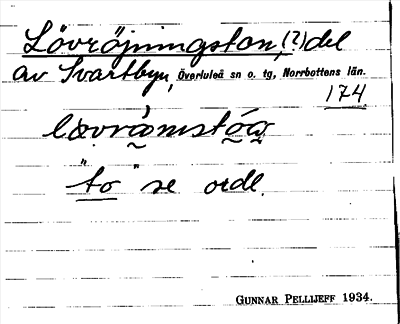 Lövröjningston, (?) del
av Svartbyn, Överluleå sn o. tg, Norrbottens län.
174
"to" se ordl.
GUNNAR PELLIJEFF 1934.